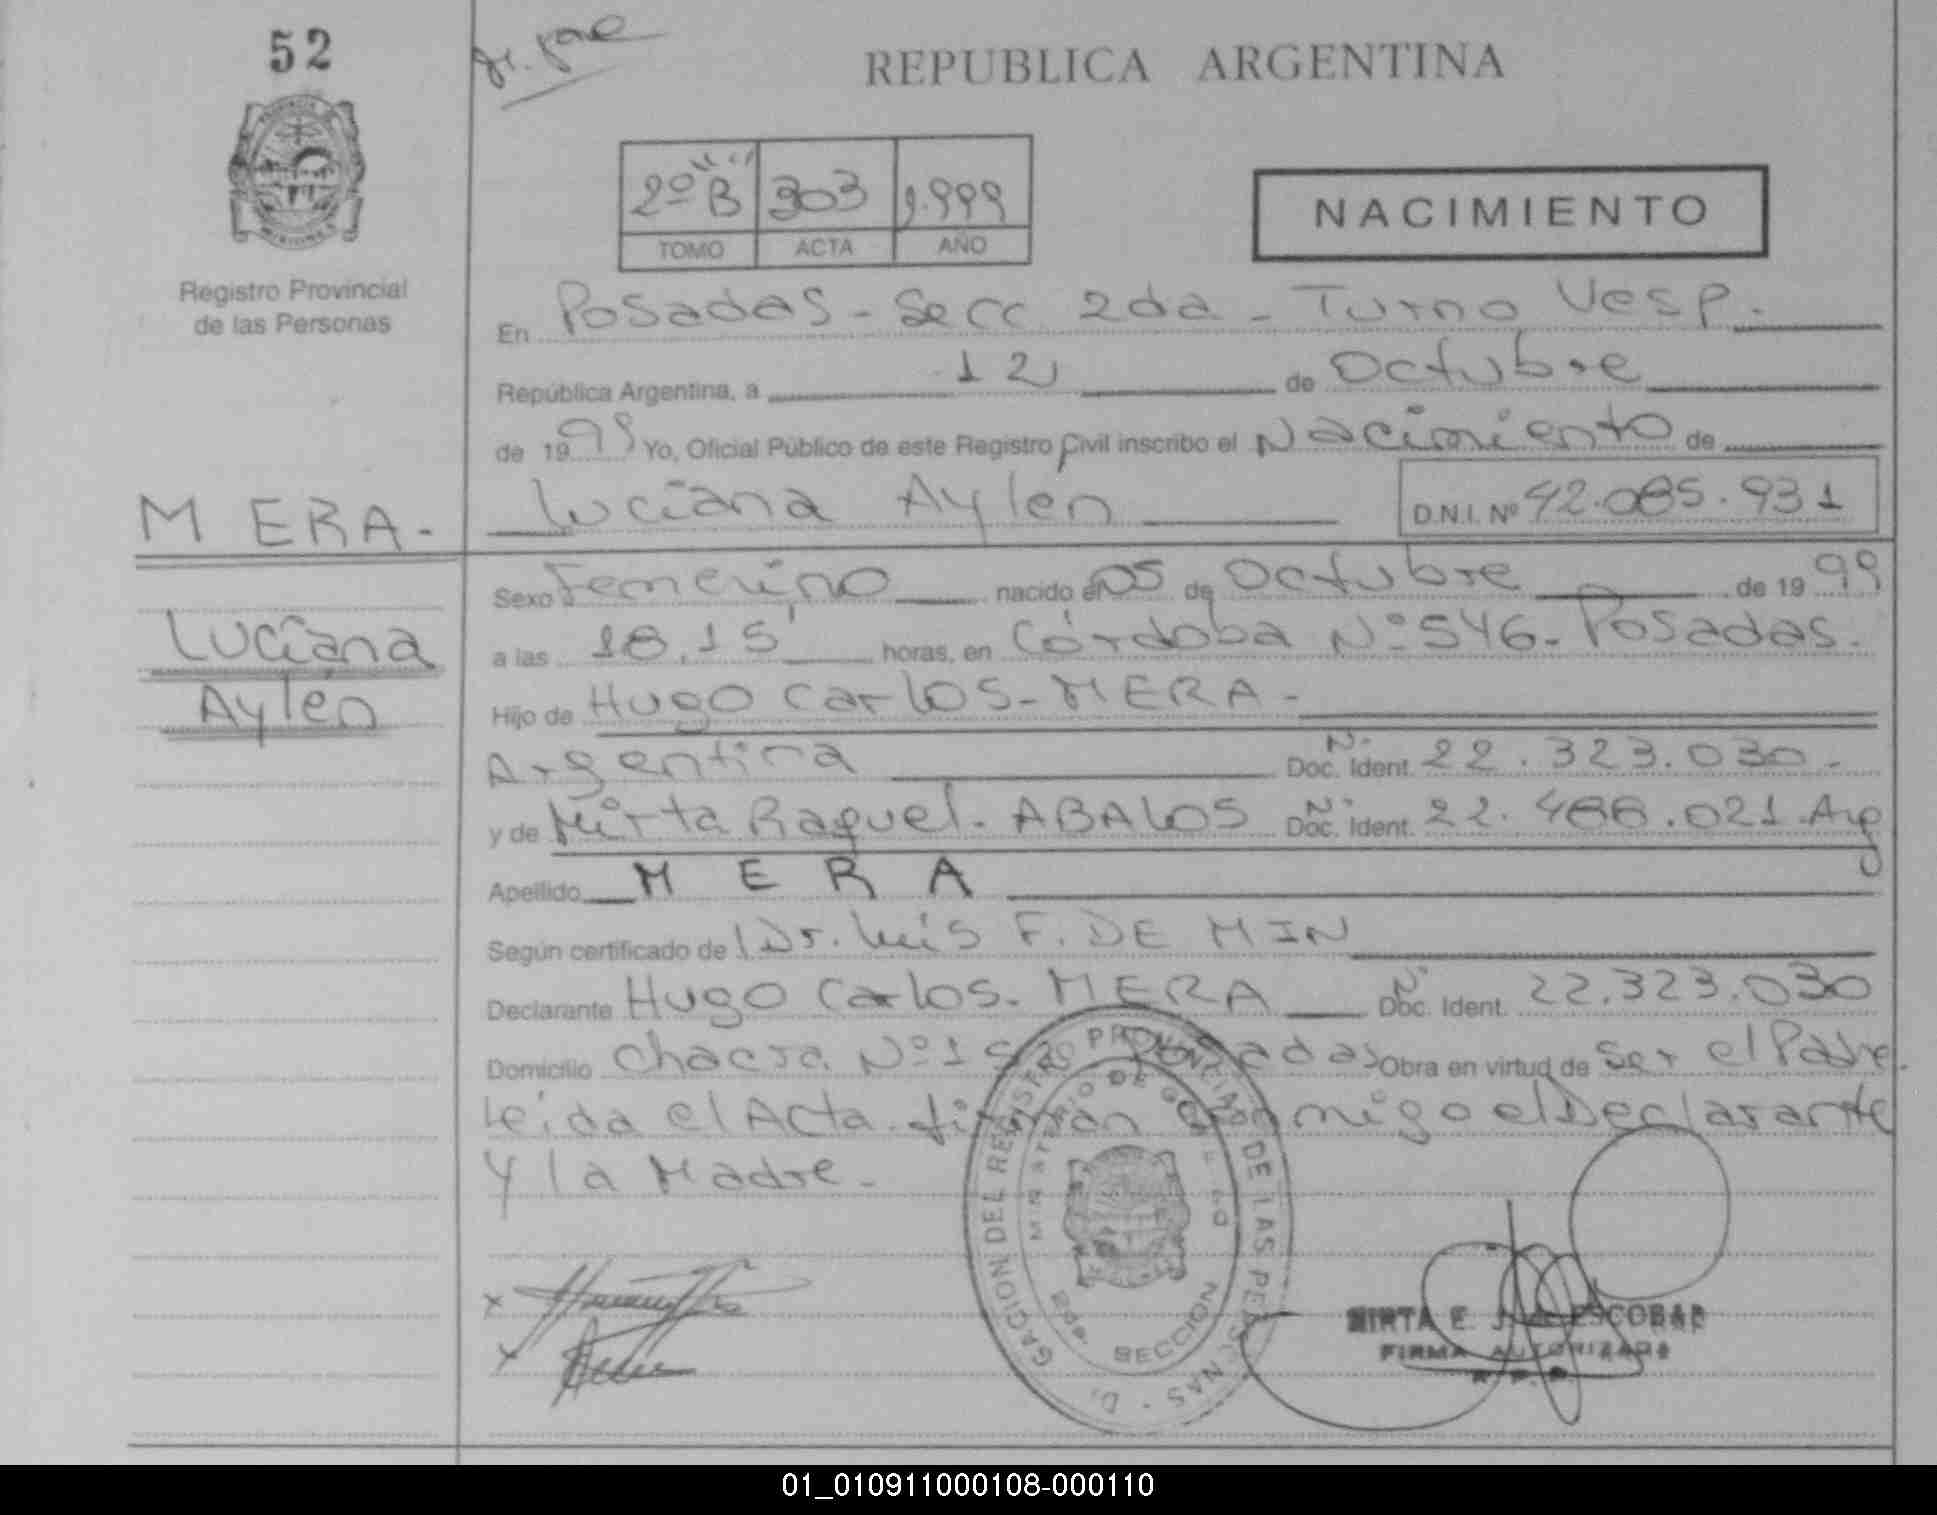 52
REPUBLICA ARGENTINA
2º "B" 303 1.999
TOMO ACTA AÑO
NACIMIENTO
Registro Provincial
de las Personas
En Posadas - Secc 2da - Turno Vesp.
República Argentina, a 12 de Octubre
de 1999 Yo, Oficial Público de este Registro Civil inscribo el Nacimiento de
MERA.
Luciana Aylen D.N.I. Nº 42.085.931
Sexo Femenino nacido el 05 de Octubre de 1999
Luciana
Aylén
a las 18,15' horas, en Córdoba Nº 546. Posadas.
Hijo de Hugo Carlos - MERA -
Argentina Nº Doc. Ident. 22.323.030.
y de Mirta Raquel. ABALOS Nº Doc. Ident. 22.488.021. Arg
Apellido MERA
Según certificado de Dr. Luis F. DE MIN
Declarante Hugo Carlos. MERA Nº Doc. Ident. 22.323.030
Domicilio Chacra Nº Posadas Obra en virtud de Ser el Padre.
Leida el Acta firman conmigo el Declarante
y la Madre.
DELEGACION DEL REGISTRO PROVINCIAL DE LAS PERSONAS
MINISTERIO DE GOBIERNO
SECCION 2da.
MIRTA E. ESCOBAR
FIRMA AUTORIZADA
01_010911000108-000110